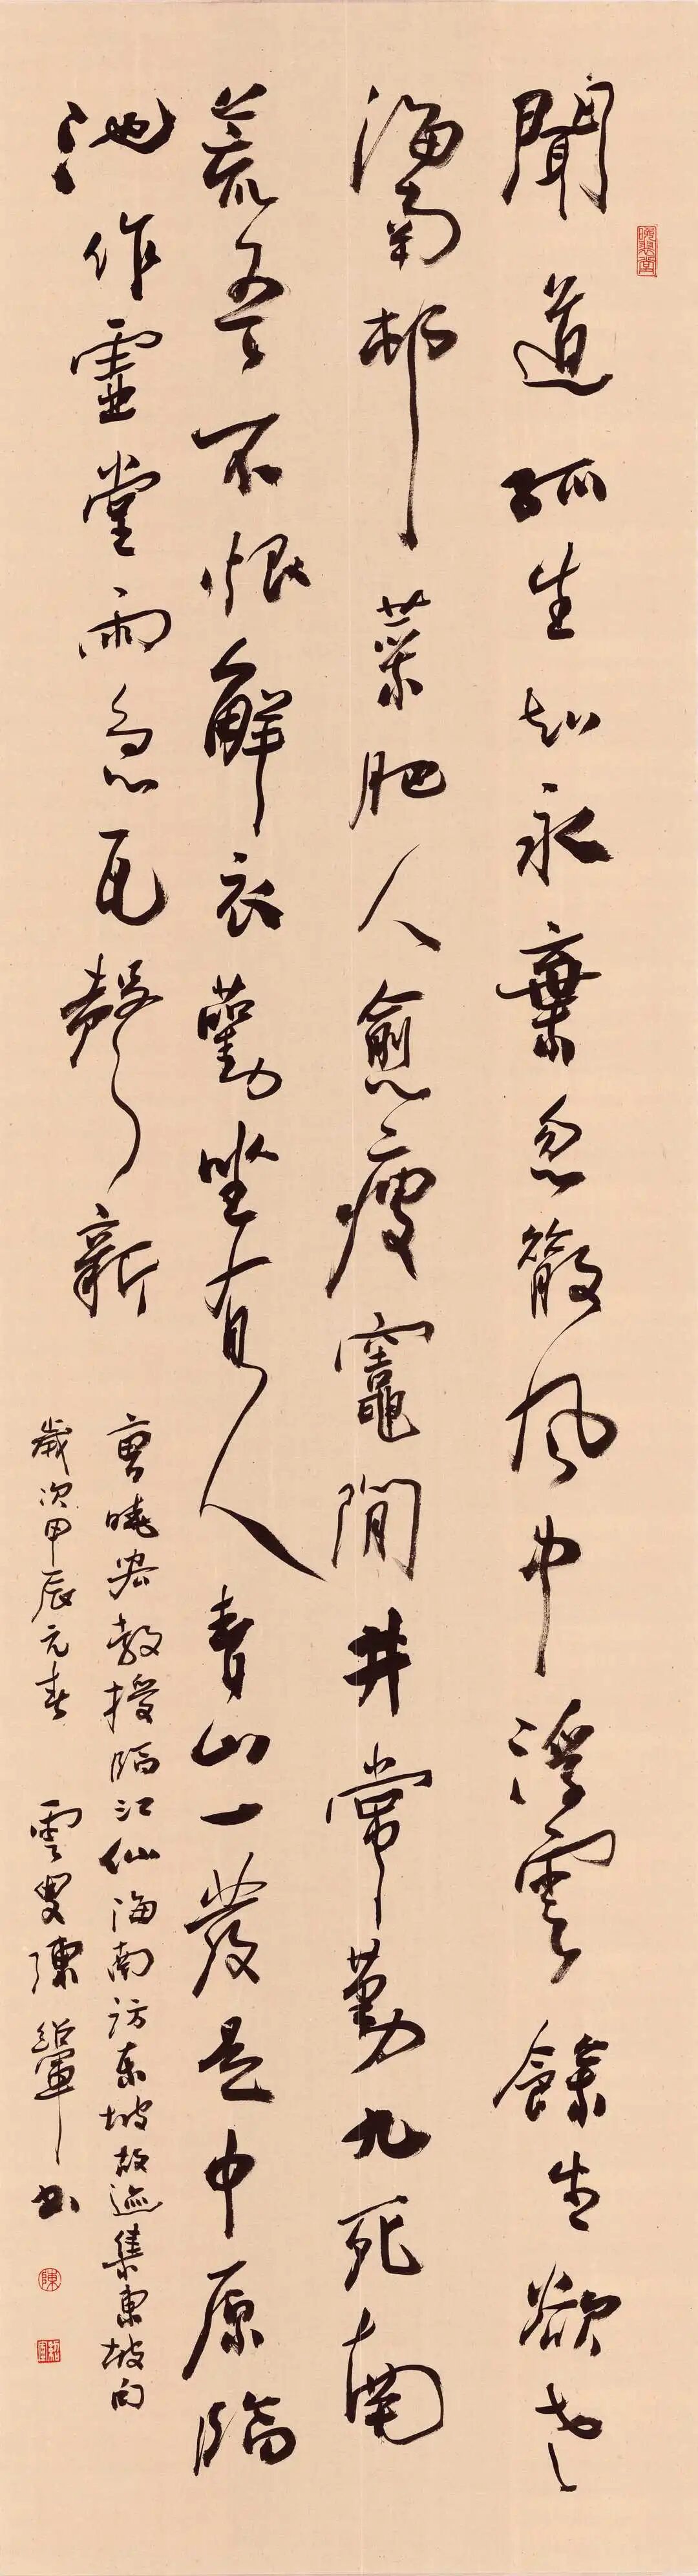 聞道孤生知永棄忽散風中浮雲餘生欲老
海南邨菜肥人愈瘦竈閒井常勤九死南
荒吾不恨解衣勸坐有人青山一發是中原臨
池作虛堂雨急瓦聲新
曾曉安教授臨江仙海南訪東坡故迹集東坡句
歲次甲辰元春 雲叟陳紹華書